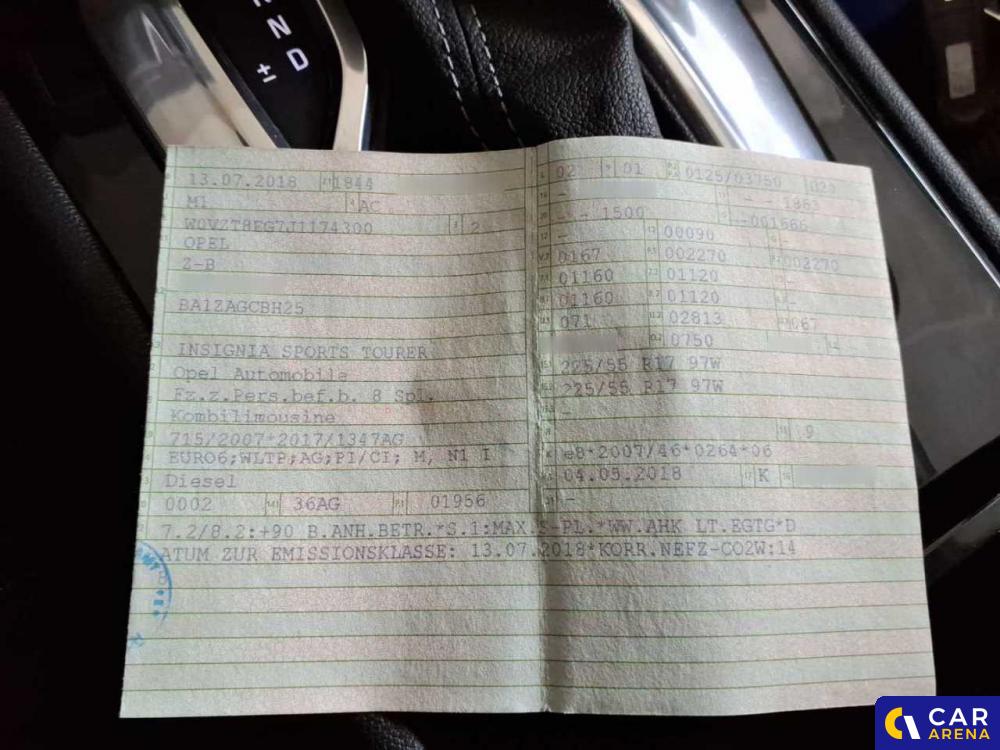 N
D
±
13.07.2018 1844
M1 AC
W0VZT8EG7J1174300 2
OPEL
Z-B
BA1ZAGCBH25
INSIGNIA SPORTS TOURER
Opel Automobile
Fz.z.Pers.bef.b. 8 Spl.
Kombilimousine
715/2007*2017/1347AG
EURO6;WLTP;AG;PI/CI; M, N1 I
Diesel
0002 36AG 01956
02 01 0125/03750
- - - 1863
- - 1500 --001666
- 00090 -
0167 002270 002270
01160 01120 -
01160 01120 -
071 02813 067
0750 -
225/55 R17 97W
225/55 R17 97W
-
9
e8*2007/46*0264*06
04.05.2018 K
-
7.2/8.2:+90 B.ANH.BETR.*S.1:MAX.5-PL.*WW.AHK LT.EGTG*D
ATUM ZUR EMISSIONSKLASSE: 13.07.2018*KORR.NEFZ-CO2W:14
CAR
ARENA